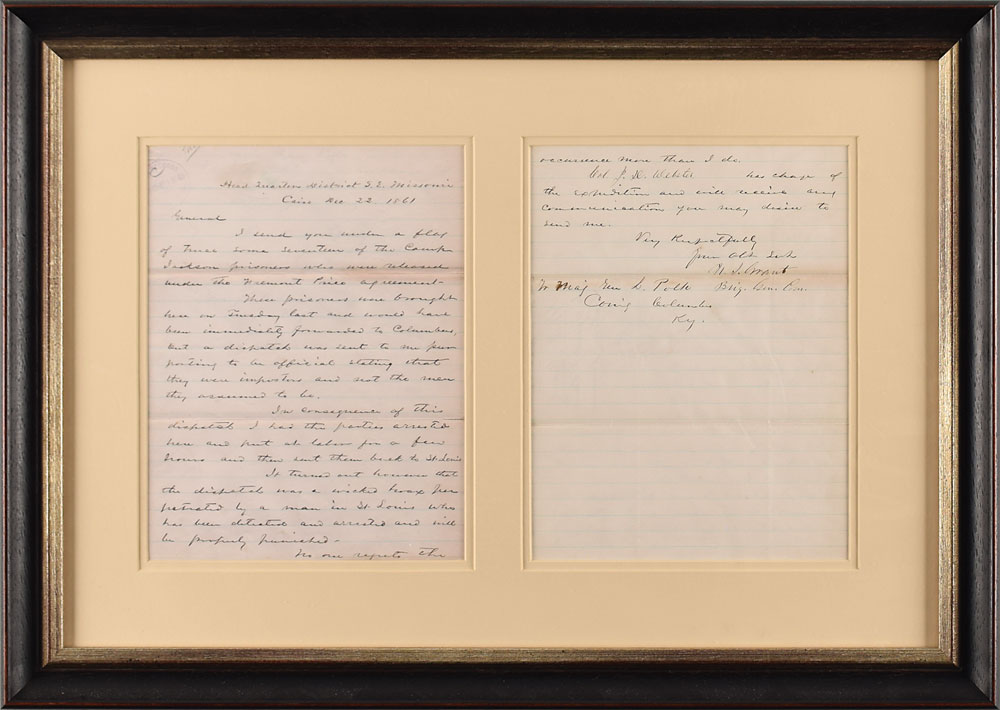 Head Quarters District S. E. Missouri
Cairo Dec. 22, 1861
General
I send you under a flag
of truce some seventeen of the Camp
Jackson prisoners who were released
under the Fremont Price agreement-
These prisoners were brought
here on Tuesday last and would have
been immediately forwarded to Columbus,
but a dispatch was sent to me pur
porting to be official stating that
they were impostors and not the men
they assumed to be.
In consequence of this
dispatch I had the parties arrested
here and put at labor for a few
hours and then sent them back to St. Louis
It turned out however that
the dispatch was a wicked hoax per
petrated by a man in St Louis who
has been detected and arrested and will
be properly punished-
No one regrets the
occurrence more than I do.
Col. J. D. Webster has charge of
the expedition and will receive any
communication you may desire to
send me.
Very Respectfully
Your Obt. Svt.
U. S. Grant
To Maj. Gen L. Polk Brig. Gen. Com.
Comg Columbus
Ky.